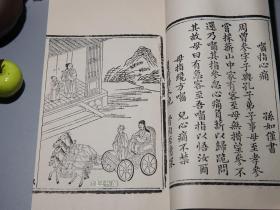 嚙指心痛
孫如僅書
周曾參字子輿孔子弟子事母至孝參
嘗採薪山中家有客至母無措望參不
還乃嚙其指參忽心痛負薪以歸跪問
其故母曰有急客至吾嚙指以悟汝爾
母指纔方嚙 兒心痛不禁